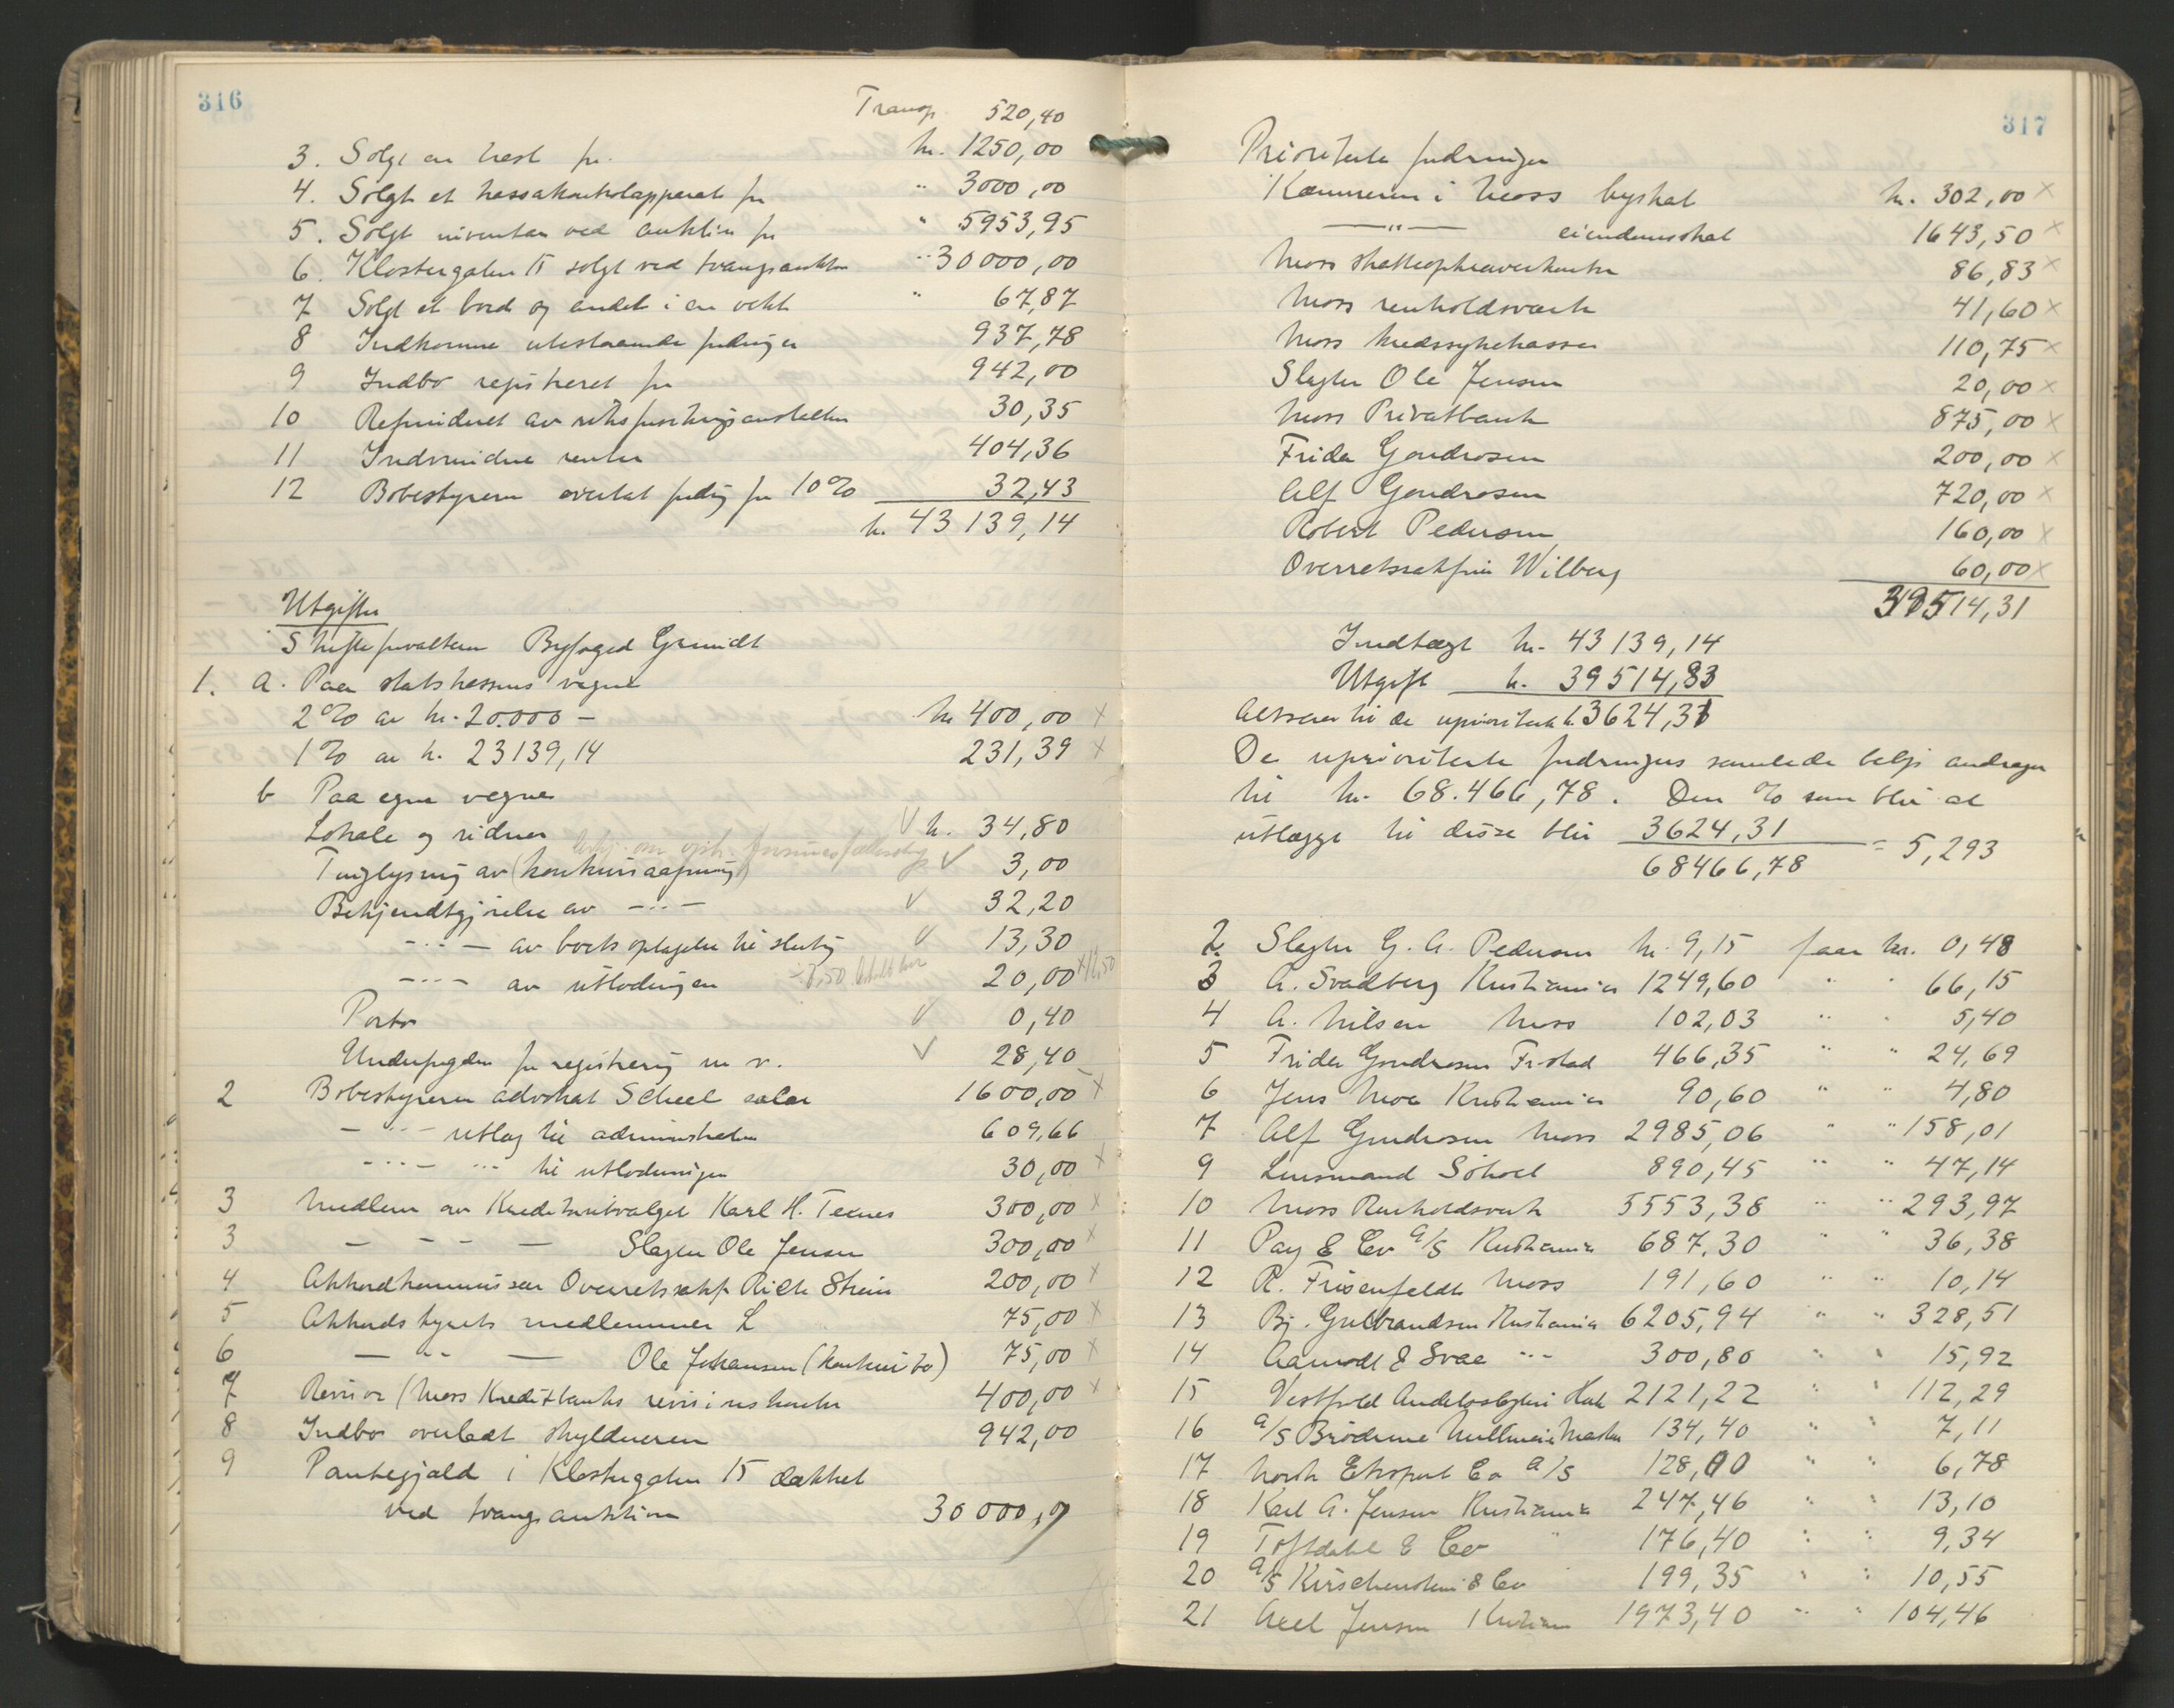 316
Transp. 520,40
3. Solgt en hest for kr. 1250,00
4. Solgt et kassakontrolapparat for " 3000,00
5. Solgt inventar ved auktion for " 5953,95
6. Klostergaten 15 solgt ved tvangsauktion " 30000,00
7 Solgt et bord og andet i en vekt " 67,87
8 Indkomne utestaaende fordringer 937,78
9 Indbo registreret for 942,00
10 Refunderet av riksforsikringsanstalten 30,35
11 Indvundne renter 404,36
12 Bobestyreren overtat fordring for 10% 32,43
kr. 43139,14
Utgifter
Skifteforvalteren Byfoged Grimidt
1. a. Paa statskassens vegne
2% av kr. 20.000 – kr 400,00 x
1% av kr. 23139,14 231,39 x
b Paa egne vegne
Lokale og vidner V kr. 34,80
Tinglysning av (konkursaapning) V 3,00
Bekjendtgjørelse av –"– V 32,20
–"– av boets optagelse til slutning V 13,30
–"– av utlodningen 20,00 x
Porto V 0,40
Underfogden for registrering m v. V 28,40
2 Bobestyreren advokat Scheel salær 1600,00 x
– " – utlæg til administration 609,66
– " – " til utlodningen 30,00 x
3 Medlem av Kreditorutvalget Karl H. Teknes 300,00 x
3 — – – — Slagter Ole Jensen 300,00 x
4 Akkordkommissær Overretssakf. Rich Strøm 200,00 x
5 Akkordstyrets medlemmer L 75,00 x
6 — " — Ole Johansen (konkurs bo) 75,00 x
7 Revisor (Moss Kreditbanks revisionskontor 400,00 x
8 Indbo overladt skyldneren 942,00
9 Pantegjæld i Klostergaten 15 dækket
ved tvangsauktion 30000,0
317
Prioriterte fordringer
Kæmneren i Moss byskat kr. 302,00 x
—"— eiendomsskat 1643,50 x
Moss skatteopkræverkontor 86,83 x
Moss renholdsverk 41,60 x
Moss kredssykekasse 110,75 x
Slagter Ole Jensen 20,00 x
Moss Privatbank 875,00 x
Frida Gondrosen 200,00 x
Alf Gondrosen 720,00 x
Robert Pedersen 160,00 x
Overretssakfører Wilberg 60,00 x
39514,31
Indtægt kr. 43139,14
Utgift kr. 39514,83
Altsaa til de uprioriterte kr. 3624,31
De uprioriterte fordringers samlede beløp andrager
til kr. 68.466,78. Den % som blir at
utlægge til disse blir 3624,31
68466,78 = 5,293
2. Slagter G. A. Pedersen kr. 9,15 faar kr. 0,48
3 A. Svadberg Kristiania 1249,60 " " 66,15
4 A. Nilsen Moss 102,03 " " 5,40
5 Frida Gondrosen Fr.stad 466,35 " " 24,69
6 Jens Moe Kristiania 90,60 " " 4,80
7 Alf Gondrosen Moss 2985,06 " " 158,01
9 Lensmand Soho 890,45 " " 47,14
10 Moss Renholdsverk 5553,38 " " 293,97
11 Pay & Co A/S Kristiania 687,30 " " 36,38
12 R. Frisenfeldt Moss 191,60 " " 10,14
13 Bj. Gulbrandsen Kristiania 6205,94 " " 328,51
14 Aamodt & Svae –"– 300,80 " " 15,92
15 Vestfold Andelsslagteri 2121,22 " " 112,29
16 A/S Brødrene 134,40 " " 7,11
17 Norsk Eksport Co A/S 128,00 " " 6,78
18 Karl A. Jensen Kristiania 247,46 " " 13,10
19 Toftdahl & Co " 176,40 " " 9,34
20 A/S Kirschenstein & Co 199,35 " " 10,55
21 Axel Jensen Kristiania 1973,40 " " 104,46